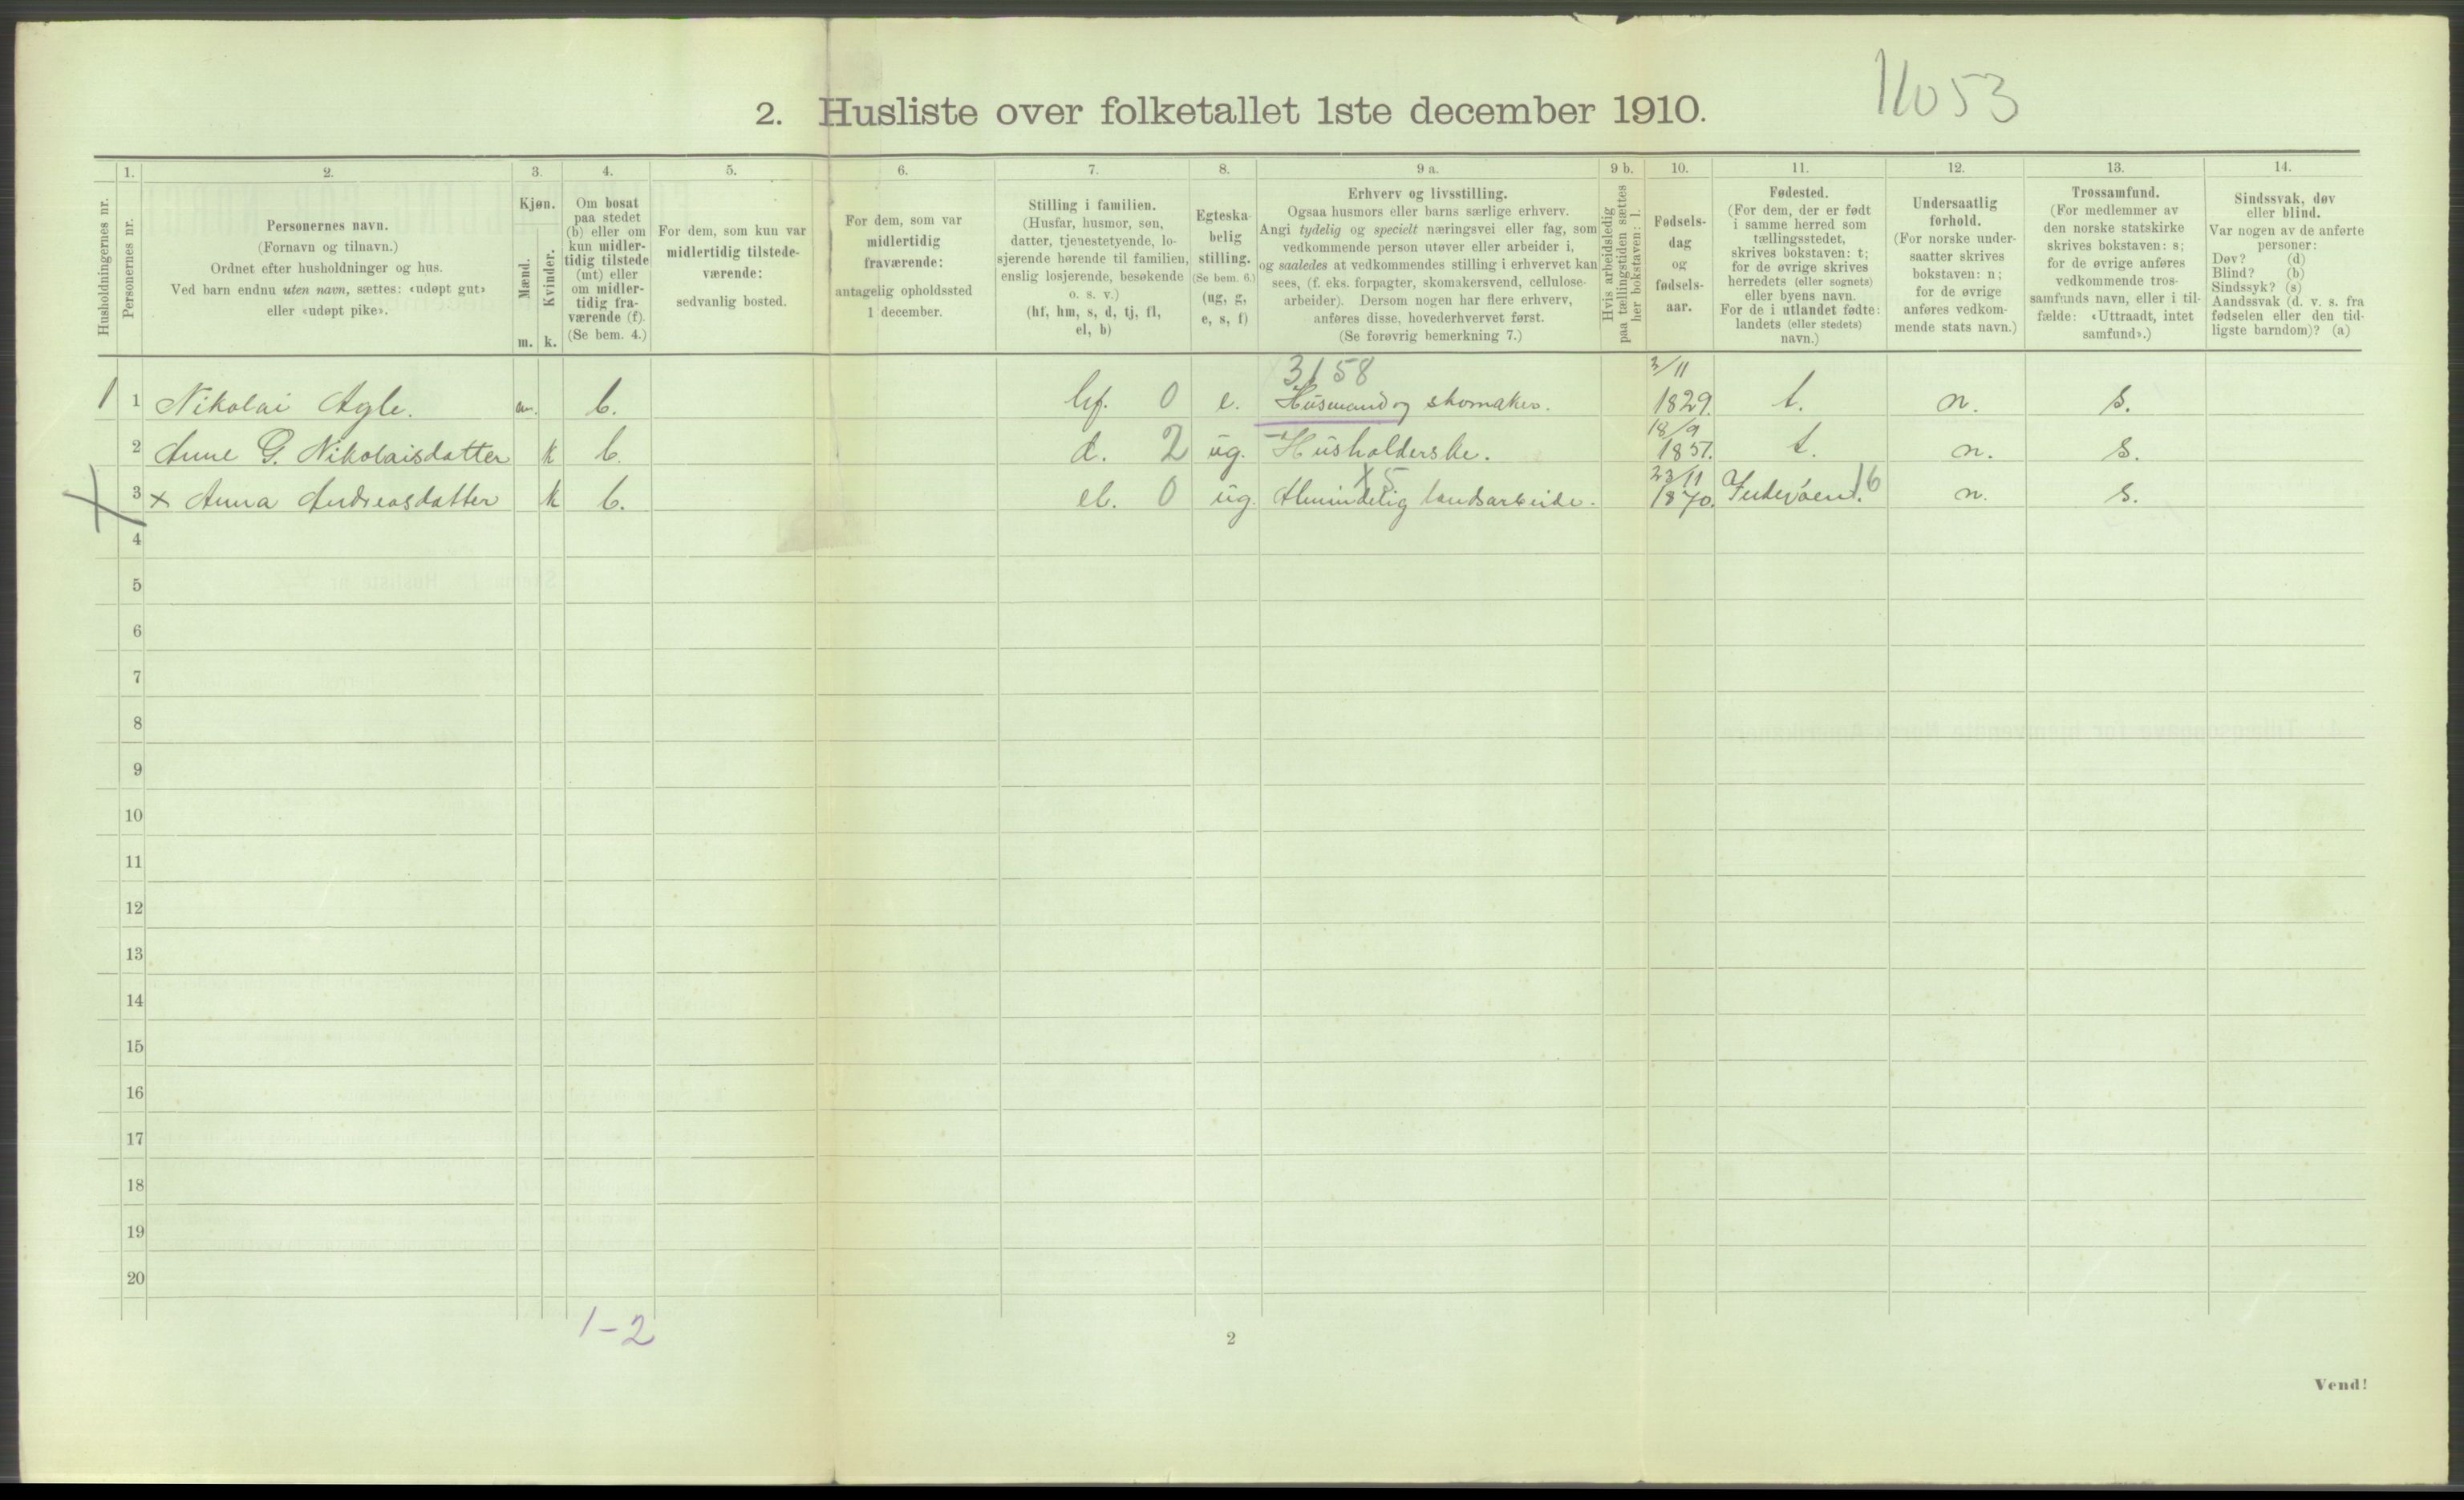 2. Husliste over folketallet 1ste december 1910.
Husholdningernes nr.
1.
Personernes nr.
2.
Personernes navn.
(Fornavn og tilnavn.)
Ordnet efter husholdninger og hus.
Ved barn endnu uten navn, sættes: «udøpt gut»
eller «udøpt pike».
3.
Kjøn.
Mænd.
Kvinder.
m. k.
4.
Om bosat
paa stedet
(b) eller om
kun midler-
tidig tilstede
(mt) eller
om midler-
tidig fra-
værende (f).
(Se bem. 4.)
5.
For dem, som kun var
midlertidig tilstede-
værende:
sedvanlig bosted.
6.
For dem, som var
midlertidig
fraværende:
antagelig opholdssted
1 december.
7.
Stilling i familien.
(Husfar, husmor, søn,
datter, tjenestetyende, lo-
sjerende hørende til familien,
enslig losjerende, besøkende
o. s. v.)
(hf, hm, s, d, tj, fl,
el, b)
8.
Egteska-
belig
stilling.
(Se bem. 6.)
(ug, g,
e, s, f)
9 a.
Erhverv og livsstilling.
Ogsaa husmors eller barns særlige erhverv.
Angi tydelig og specielt næringsvei eller fag, som
vedkommende person utøver eller arbeider i,
og saaledes at vedkommendes stilling i erhvervet kan
sees, (f. eks. forpagter, skomakersvend, cellulose-
arbeider). Dersom nogen har flere erhverv,
anføres disse, hovederhvervet først.
(Se forøvrig bemerkning 7.)
9 b.
Hvis arbeidsledig
paa tællingstiden sættes
her bokstaven: l.
10.
Fødsels-
dag
og
fødsels-
aar.
11.
Fødested.
(For dem, der er født
i samme herred som
tællingsstedet,
skrives bokstaven: t;
for de øvrige skrives
herredets (eller sognets)
eller byens navn.
For de i utlandet fødte:
landets (eller stedets)
navn.)
12.
Undersaatlig
forhold.
(For norske under-
saatter skrives
bokstaven: n;
for de øvrige
anføres vedkom-
mende stats navn.)
13.
Trossamfund.
(For medlemmer av
den norske statskirke
skrives bokstaven: s;
for de øvrige anføres
vedkommende tros-
samfunds navn, eller i til-
fælde: «Uttraadt, intet
samfund».)
14.
Sindssvak, døv
eller blind.
Var nogen av de anførte
personer:
Døv? (d)
Blind? (b)
Sindssyk? (s)
Aandssvak (d. v. s. fra
fødselen eller den tid-
ligste barndom)? (a)
3158 3/11
1 1 Nikolai Agle. m. b. hf. 0 e. Husmand og skomaker. 1829. t. n. s.
18/9
2 Anne G. Nikolaisdatter k b. d. 2 ug. Husholderske. 1851. t. n. s.
X5 23/11
3 x Anna Andreasdatter k b. el. 0 ug. Almindelig landsarbeide. 1870. Inderøen. 16 n. s.
4
5
6
7
8
9
10
11
12
13
14
15
16
17
18
19
20
1-2
2
Vend!